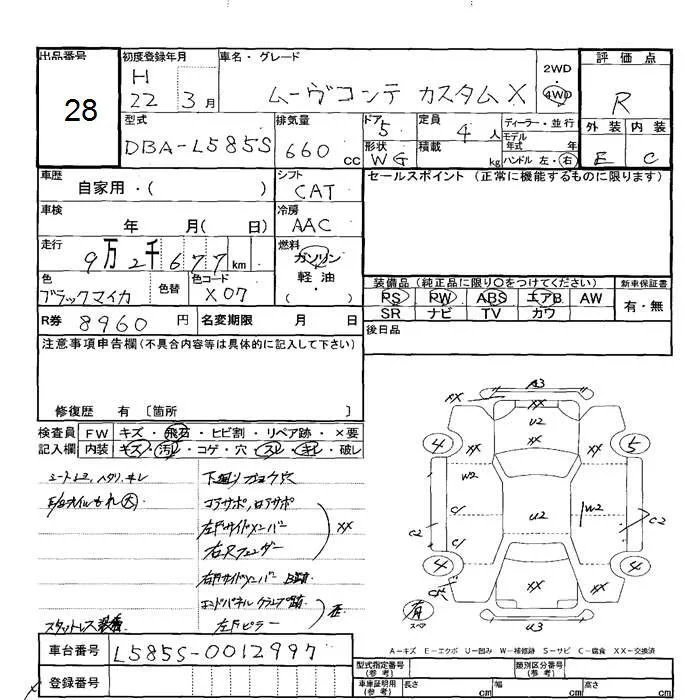 出品番号
28
初度登録年月
H
22 3月
車名・グレード
ムーヴコンテ カスタム X
2WD
4WD
評価点
R
外装 内装
E C
型式
DBA-L585S
排気量
660 cc
ドア
5
形状
WG
定員
4人
積載
kg
ディーラー・並行
モデル
年式 年
ハンドル 左・右
車歴
自家用・( )
シフト
CAT
セールスポイント (正常に機能するものに限ります)
車検
年 月( 日)
冷房
AAC
走行
9万2千677km
燃料
ガソリン
軽・油
( )
色
ブラックマイカ
色替
色コード
X07
装備品(純正品に限り○をつけてください)
新車保証書
PS PW ABS エアB AW
SR ナビ TV カワ
有・無
R券 8960円
名変期限 月 日
後日品
注意事項申告欄(不具合内容等は具体的に記入して下さい)
修復歴 有 〔箇所 〕
検査員 FW キズ・飛石・ヒビ割・リペア跡・×要
記入欄 内装 キズ・汚レ・コゲ・穴・スレ・キレ・破レ
下廻り
コアサポ、ロアサポ
左右サイドメンバー
右フェンダー
XX
右サイドメンバー
エンドパネル
左ピラー
スタットレス装着
A3
XX
U2
XX
4
XX
XX
5
W2
C1
U2
W2
C2
C1
C2
4
XX
XX
4
有
スペア
U3
A-キズ E-エクボ U-凹み W-補修跡 S-サビ C-腐食 XX-交換済
車台番号 L585S-0012997
登録番号
型式指定番号
(参考)
類別区分番号
(参考)
車庫証明用
(参考)
長さ cm
幅 cm
高さ cm